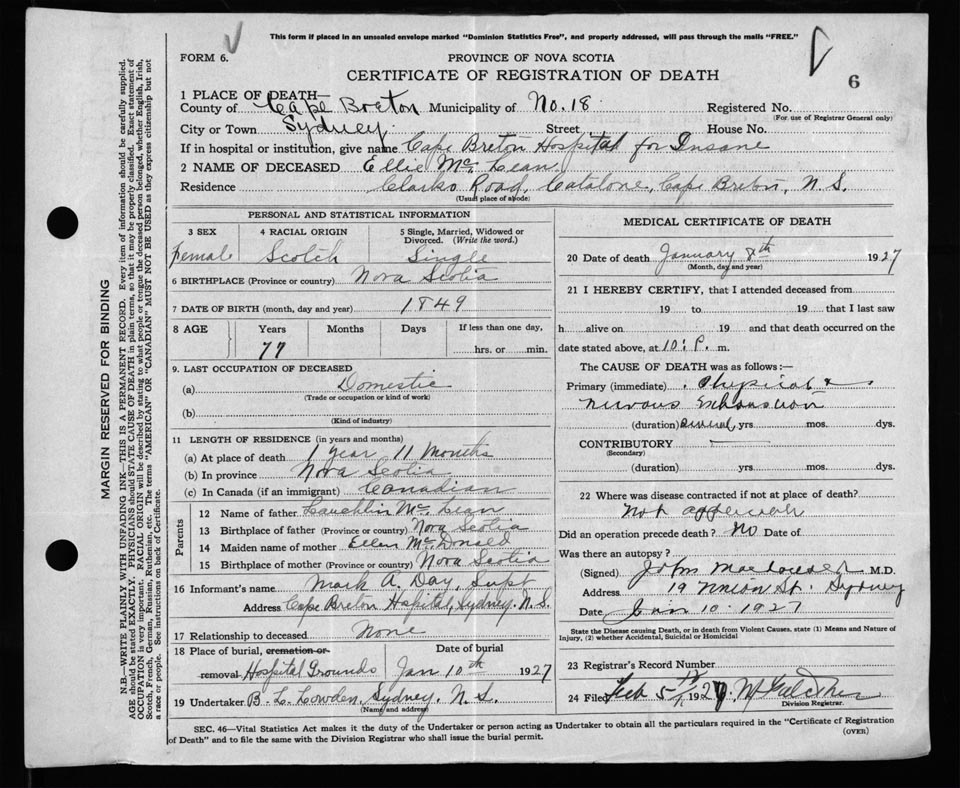 This form if placed in an unsealed envelope marked "Dominion Statistics Free", and properly addressed, will pass through the mails "FREE."
FORM 6.
PROVINCE OF NOVA SCOTIA
CERTIFICATE OF REGISTRATION OF DEATH
6
1 PLACE OF DEATH—
County of Cape Breton Municipality of No. 18 Registered No.
(For use of Registrar General only)
City or Town Sydney. Street House No.
If in hospital or institution, give name Cape Breton Hospital for Insane
2 NAME OF DECEASED Ellie Mc Lean.
Residence Clarks Road, Catalone, Cape Breton, N. S.
(Usual place of abode)
PERSONAL AND STATISTICAL INFORMATION
3 SEX 4 RACIAL ORIGIN 5 Single, Married, Widowed or Divorced. (Write the word.)
Female Scotch Single
6 BIRTHPLACE (Province or country) Nova Scotia
7 DATE OF BIRTH (month, day and year) 1849
8 AGE Years Months Days If less than one day,
77 hrs. or min.
9. LAST OCCUPATION OF DECEASED
(a) Domestic
(Trade or occupation or kind of work)
(b)
(Kind of industry)
11 LENGTH OF RESIDENCE (in years and months)
(a) At place of death 1 year 11 Months
(b) In province Nova Scotia
(c) In Canada (if an immigrant) Canadian
Parents
12 Name of father Lauchlin Mc Lean
13 Birthplace of father (Province or country) Nova Scotia
14 Maiden name of mother Ellen Mc Donald
15 Birthplace of mother (Province or country) Nova Scotia
16 Informant's name Mark A. Day, Supt
Address Cape Breton Hospital, Sydney. N. S.
17 Relationship to deceased None
18 Place of burial, cremation or Date of burial
removal Hospital Grounds Jan 10th 1927
19 Undertaker B. L. Lowden, Sydney. N. S.
(Name and address)
MEDICAL CERTIFICATE OF DEATH
20 Date of death January 8th 1927
(Month, day and year)
21 I HEREBY CERTIFY, that I attended deceased from
19 to 19 that I last saw
h alive on 19 and that death occurred on the
date stated above, at 10: P. m.
The CAUSE OF DEATH was as follows:—
Primary (immediate) Physical &
Nervous Exhaustion
(duration) several yrs. mos. dys.
CONTRIBUTORY
(Secondary)
(duration) yrs. mos. dys.
22 Where was disease contracted if not at place of death?
Not
Did an operation precede death? No Date of
Was there an autopsy?
(Signed) John M.D.
Address 19 Union St. Sydney
Date Jan 10. 1927
State the Disease causing Death, or in death from Violent Causes, state (1) Means and Nature of Injury, (2) whether Accidental, Suicidal or Homicidal
23 Registrar's Record Number
24 Filed Feb 5 1927
Division Registrar.
SEC. 46—Vital Statistics Act makes it the duty of the Undertaker or person acting as Undertaker to obtain all the particulars required in the "Certificate of Registration
of Death" and to file the same with the Division Registrar who shall issue the burial permit.
(OVER)
MARGIN RESERVED FOR BINDING
N.B—WRITE PLAINLY WITH UNFADING INK—THIS IS A PERMANENT RECORD. Every item of information should be carefully supplied.
AGE should be stated EXACTLY. PHYSICIANS should STATE CAUSE OF DEATH in plain terms, so that it may be properly classified. Exact statement of
OCCUPATION is very important. RACIAL ORIGIN will be described by stating to what people or tongue the deceased person belonged, whether English, Irish,
Scotch, French, German, Russian, Ruthenian, etc. The terms "AMERICAN" or "CANADIAN" MUST NOT BE USED as they express citizenship but not
a race or people. See instructions on back of Certificate.